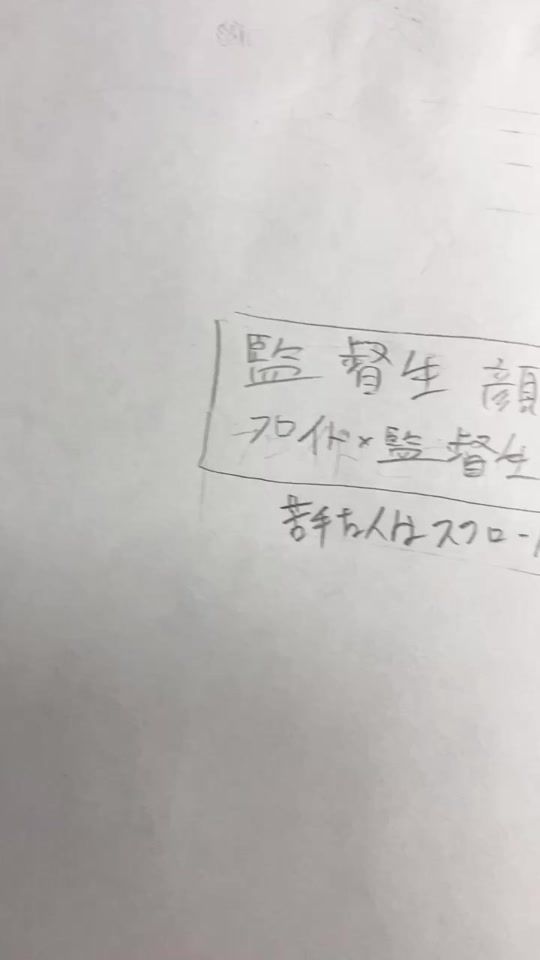 監督生顔
フロイド×監督生
苦手な人はスクロール